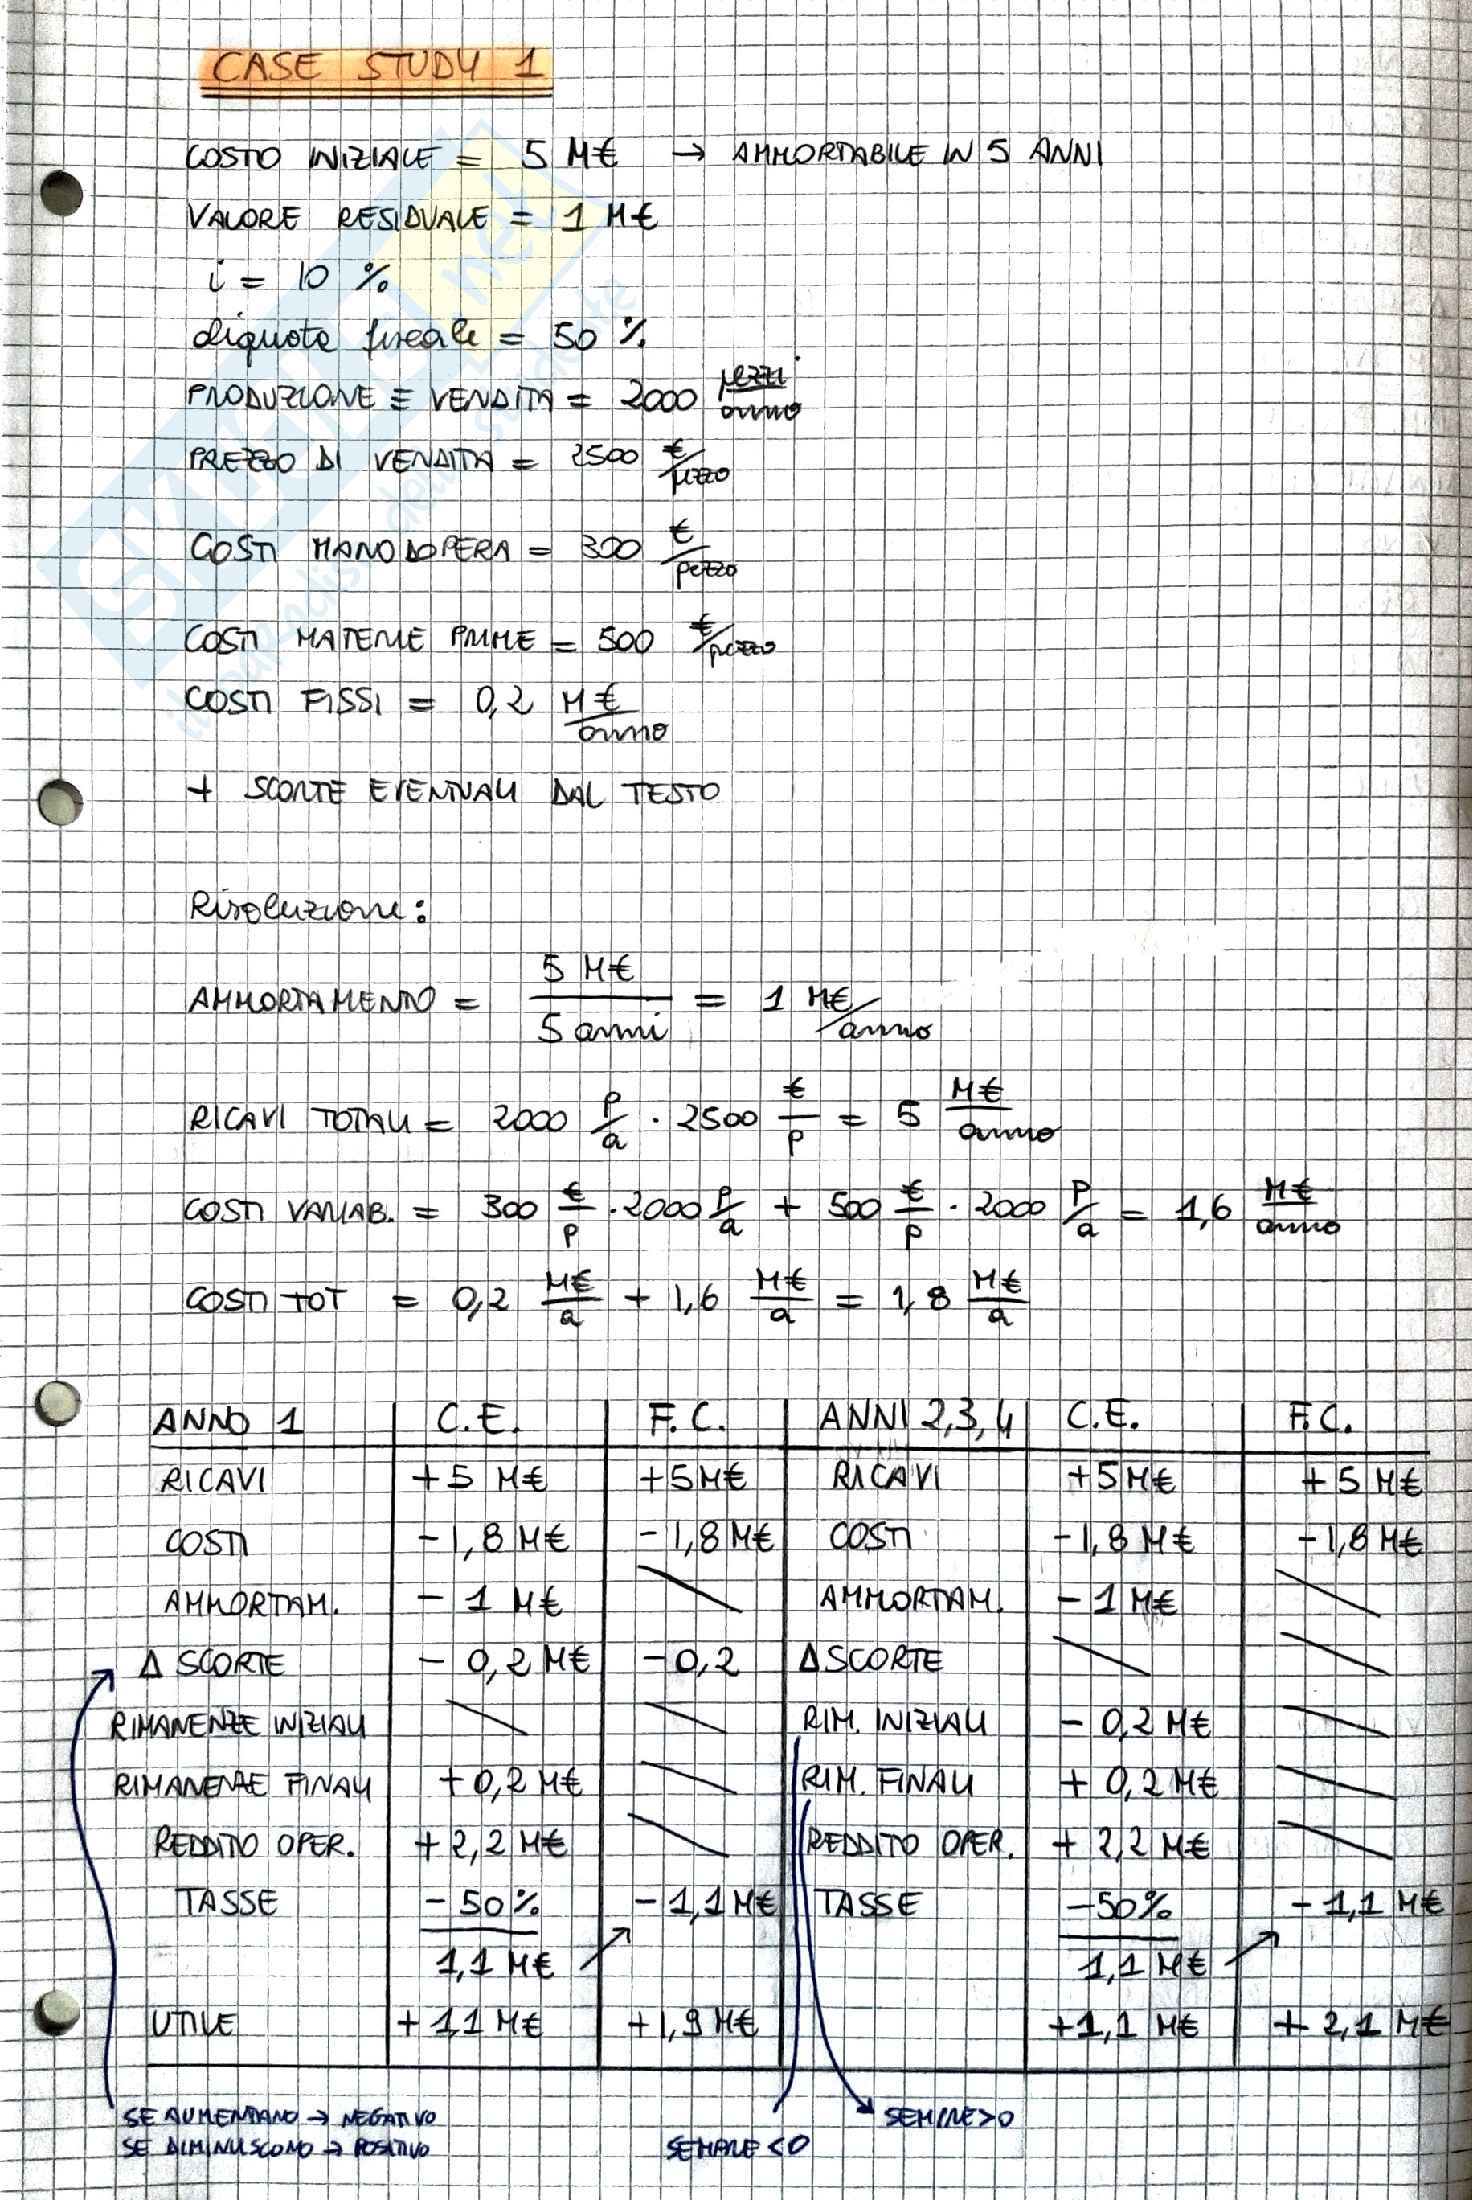 CASE STUDY 1
COSTO INIZIALE = 5 M€ → AMMORTABILE IN 5 ANNI
VALORE RESIDUALE = 1 M€
i = 10 %
aliquota fiscale = 50 %
PRODUZIONE E VENDITA = 2000 pezzi/anno
PREZZO DI VENDITA = 2500 €/pezzo
COSTI MANODOPERA = 300 €/pezzo
COSTI MATERIE PRIME = 500 €/pezzo
COSTI FISSI = 0,2 M€/anno
+ SCORTE EVENTUALI DAL TESTO
Risoluzione:
AMMORTAMENTO = 5 M€/5 anni = 1 M€/anno
RICAVI TOTALI = 2000 p/a · 2500 €/p = 5 M€/anno
COSTI VARIAB. = 300 €/p · 2000 p/a + 500 €/p · 2000 p/a = 1,6 M€/anno
COSTI TOT = 0,2 M€/a + 1,6 M€/a = 1,8 M€/a
ANNO 1 C.E. F.C. ANNI 2,3,4 C.E. F.C.
RICAVI +5 M€ +5 M€ RICAVI +5 M€ +5 M€
COSTI -1,8 M€ -1,8 M€ COSTI -1,8 M€ -1,8 M€
AMMORTAM. -1 M€ AMMORTAM. -1 M€
Δ SCORTE -0,2 M€ -0,2 Δ SCORTE
RIMANENZE INIZIALI RIM. INIZIALI -0,2 M€
RIMANENZE FINALI +0,2 M€ RIM. FINALI +0,2 M€
REDDITO OPER. +2,2 M€ REDDITO OPER. +2,2 M€
TASSE -50% -1,1 M€ TASSE -50% -1,1 M€
1,1 M€ 1,1 M€
UTILE +1,1 M€ +1,9 M€ +1,1 M€ +2,1 M€
SE AUMENTANO → NEGATIVO
SE DIMINUISCONO → POSITIVO
SEMPRE <0
SEMPRE >0